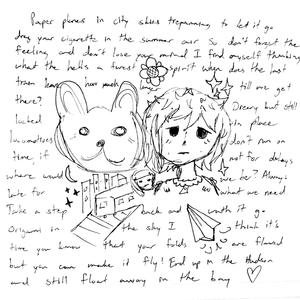 Paper planes in city skies trepanning to let it go
drag your cigarette in the summer air So don't forget the
feeling and don't lose your mind I find myself thinking
what the hell's a forest spirit when does the last
train leave how much till we get
there? Dreary but still
locked in place
locomotives don't run on
time if not for delays
where would we be? Always
late for what we need
Take a step back and watch it go
Origami in the sky I think it's
time you know that your folds are flawed
but you can make it fly! End up in the Hudson
and still float away on the bay